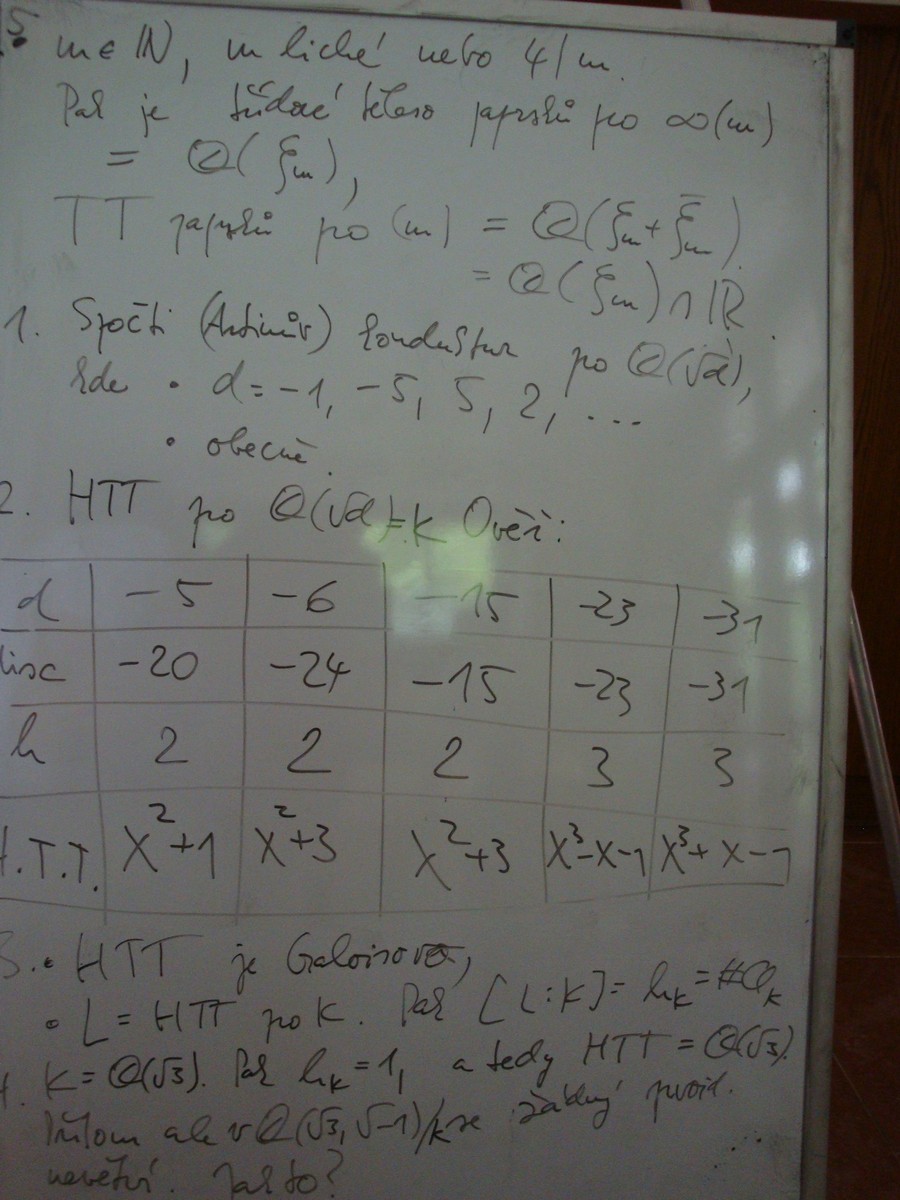 5. m ∈ ℕ, m liché nebo 4|m.
Pak je třídové těleso paprsků po ∞(m)
= ℚ(ξₘ),
TT paprsků po (m) = ℚ(ξₘ + ξ̄ₘ)
= ℚ(ξₘ) ∩ ℝ.
1. Spočti (Artinův) konduktor po ℚ(√d),
kde • d = -1, -5, 5, 2, ...
• obecně.
2. HTT po ℚ(√d) = K Ověř:
d -5 -6 -15 -23 -31
disc -20 -24 -15 -23 -31
h 2 2 2 3 3
H.T.T. X²+1 X²+3 X²+3 X³-X-1 X³+X-1
3. • HTT je Galoisovo,
• L = HTT po K. Pak [L:K] = hₖ = #Clₖ
4. K = ℚ(√3). Pak hₖ = 1, a tedy HTT = ℚ(√3).
Přitom ale v ℚ(√3, √-1)/K se žádný prvoid.
nevětví. Jak to?